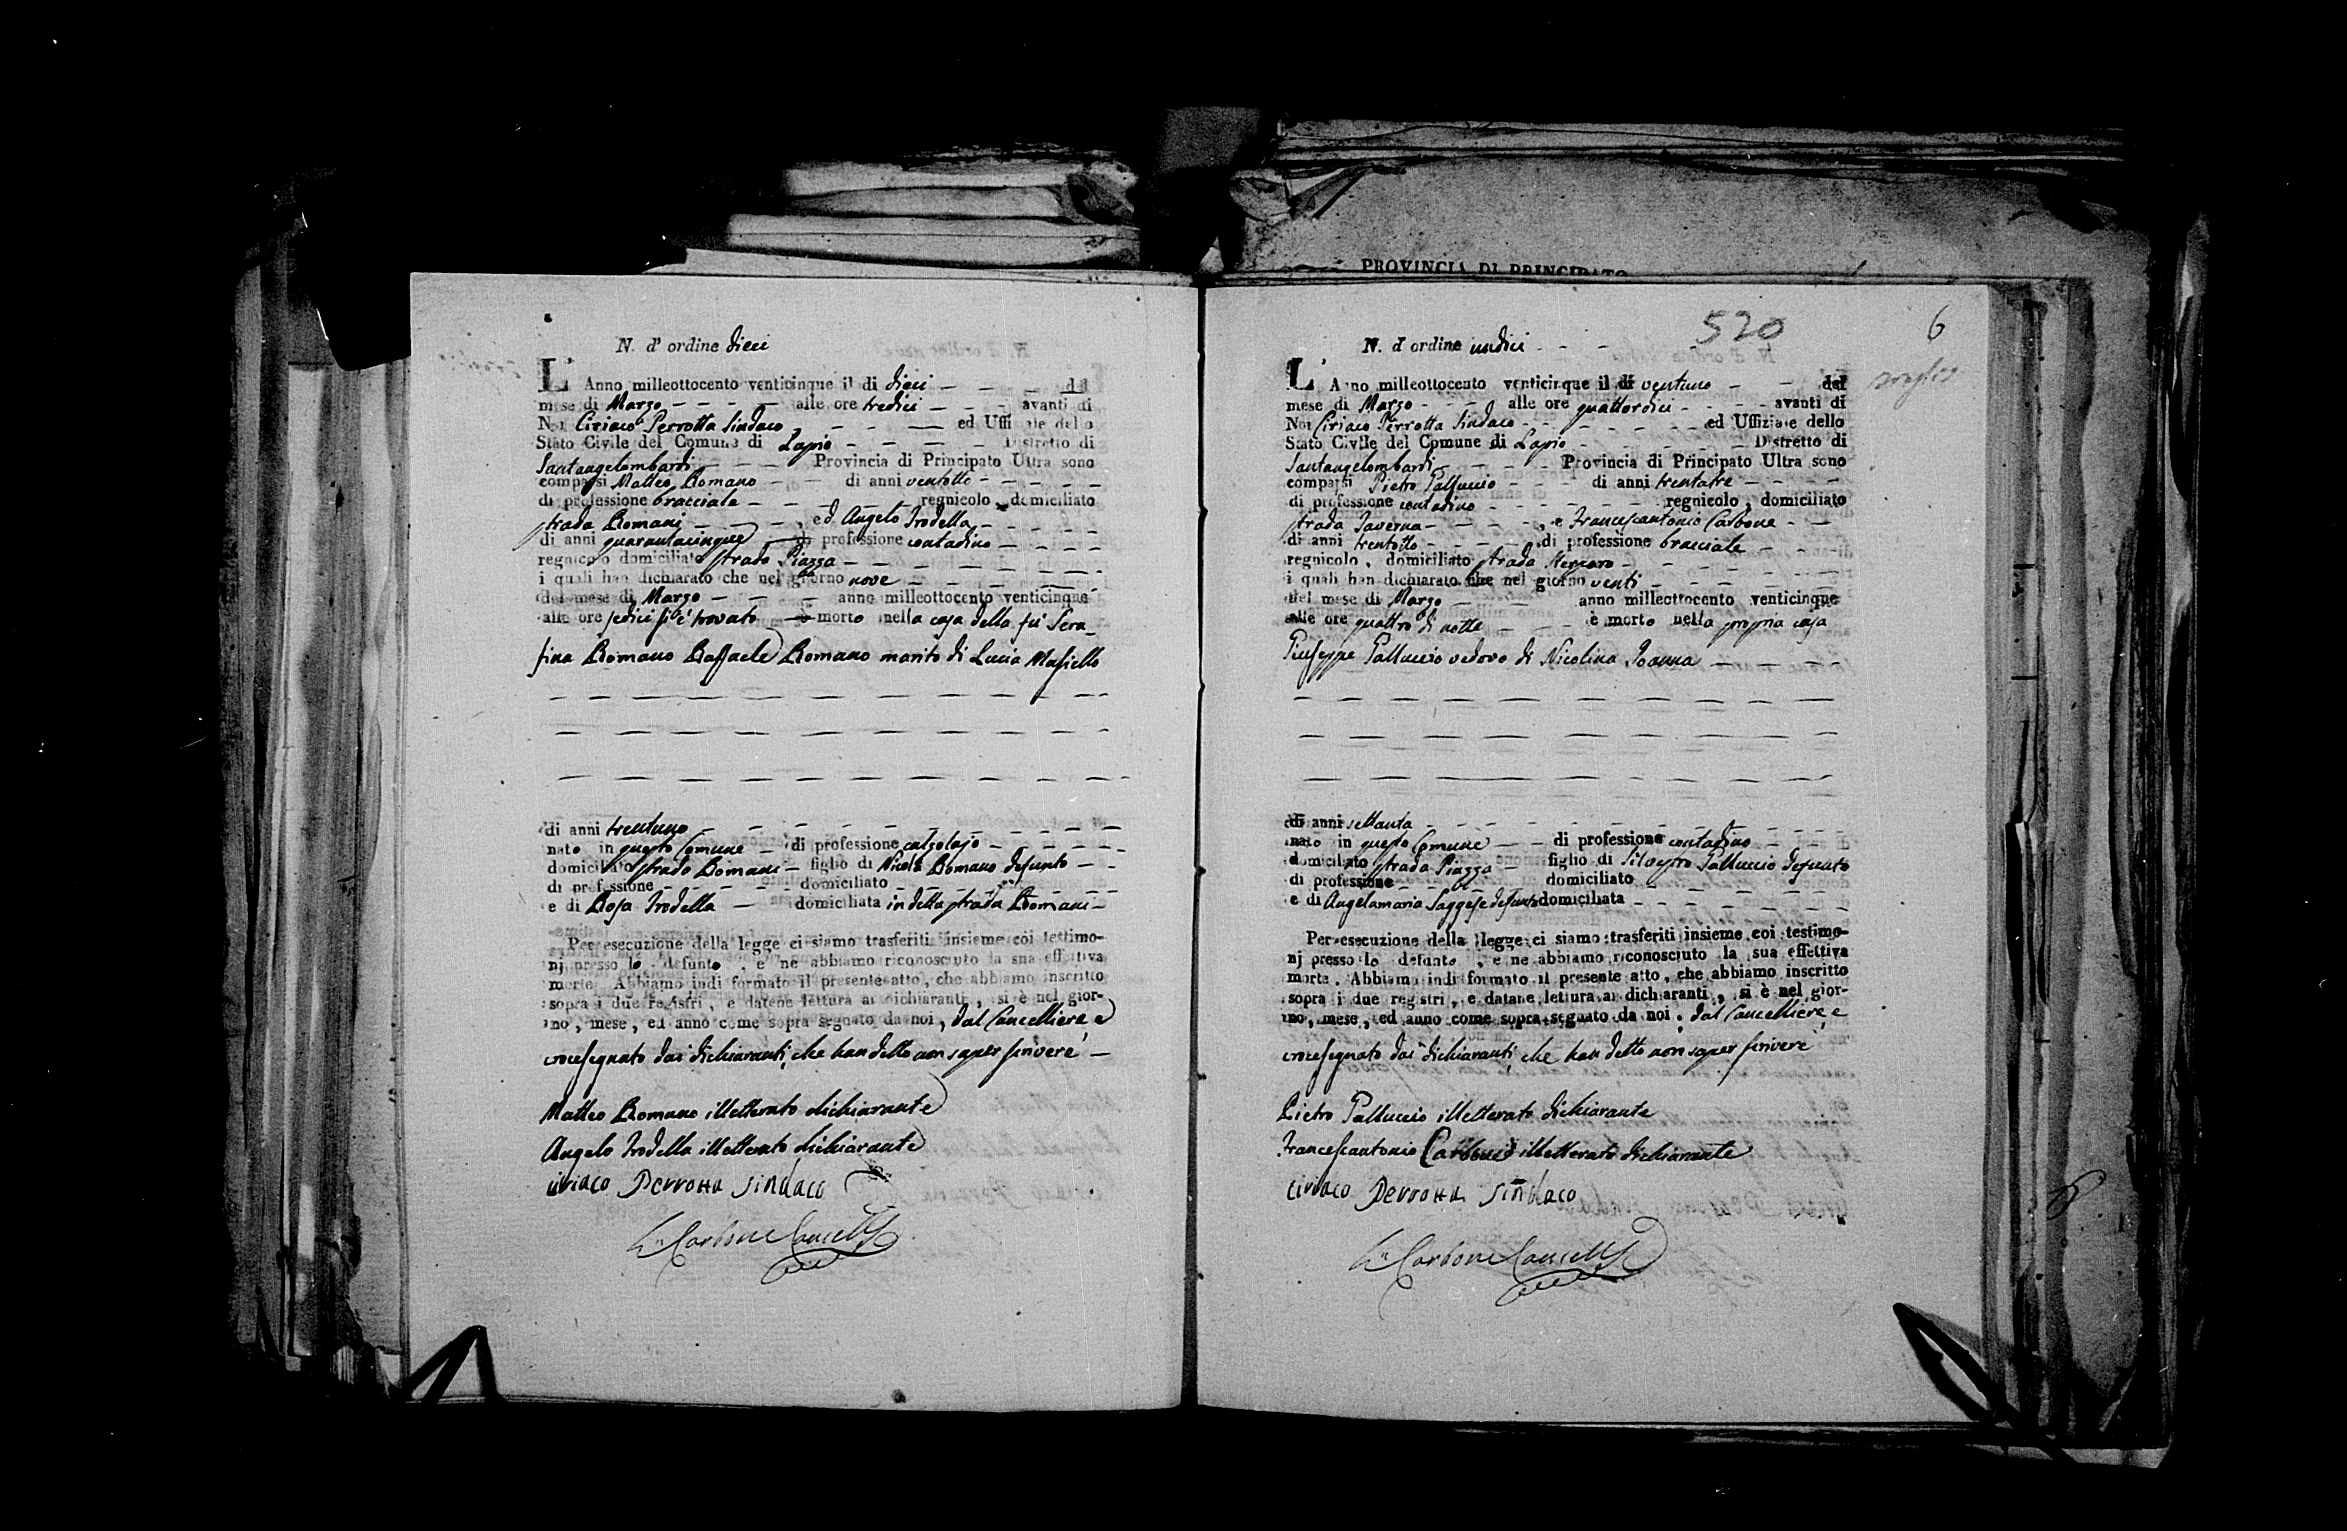 PROVINCIA DI PRINCIPATO
N. d' ordine dieci
L' Anno milleottocento venticinque il di dieci del
mese di Marzo alle ore tredici avanti di
Noi Ciriaco Perrotta Sindaco ed Uffiziale dello
Stato Civile del Comune di Lapio Distretto di
Santangelombardi Provincia di Principato Ultra sono
comparsi Matteo Romano di anni ventotto
di professione bracciale regnicolo domiciliato
strada Romani , ed Angelo Trodella
di anni quarantacinque di professione contadino
regnicolo domiciliato strada Piazza
i quali han dichiarato che nel giorno nove
del mese di Marzo anno milleottocento venticinque
alle ore sedici si è trovato morto nella casa della fu Sera-
fina Romano Raffaele Romano marito di Lucia Masiello
di anni trentuno
nato in questo Comune di professione calzolajo
domiciliato strada Romani figlio di Nicola Romano defunto
di professione domiciliato
e di Rosa Trodella domiciliata in detta strada Romani
Per esecuzione della legge ci siamo trasferiti insieme coi testimo-
nj presso lo defunto , e ne abbiamo riconosciuto la sua effettiva
morte. Abbiamo indi formato il presente atto, che abbiamo inscritto
sopra i due registri, e datene lettura ai dichiaranti, si è nel gior-
no, mese, ed anno come sopra segnato da noi, dal Cancelliere e
crocesegnato dai dichiaranti, che han detto non saper scrivere
Matteo Romano illetterato dichiarante
Angelo Trodella illetterato dichiarante
ciriaco Perrotta Sindaco
Carbone Cancell.
520
6
N. d' ordine undici
L' Anno milleottocento venticinque il di ventuno del
mese di Marzo alle ore quattordici avanti di
Noi Ciriaco Perrotta Sindaco ed Uffiziale dello
Stato Civile del Comune di Lapio Distretto di
Santangelombardi Provincia di Principato Ultra sono
comparsi Pietro Galluccio di anni trentatre
di professione contadino regnicolo, domiciliato
strada Taverna , e Francescantonio Carbone
di anni trentotto di professione bracciale
regnicolo, domiciliato strada
i quali han dichiarato che nel giorno venti
del mese di Marzo anno milleottocento venticinque
alle ore quattro di notte è morto nella propria casa
Giuseppe Galluccio vedovo di Nicolina Joanna
di anni settanta
nato in questo Comune di professione contadino
domiciliato strada Piazza figlio di Silvestro Galluccio defunto
di professione domiciliato
e di Angelamaria Saggese defunta domiciliata
Per esecuzione della legge ci siamo trasferiti insieme coi testimo-
nj presso lo defunto , e ne abbiamo riconosciuto la sua effettiva
morte. Abbiamo indi formato il presente atto, che abbiamo inscritto
sopra i due registri, e datane lettura ai dichiaranti, si è nel gior-
no, mese, ed anno come sopra segnato da noi, dal Cancelliere, e
crocesegnato dai dichiaranti, che han detto non saper scrivere
Pietro Galluccio illetterato dichiarante
Francescantonio Carbone illetterato dichiarante
ciriaco Perrotta Sindaco
Carbone Cancell.